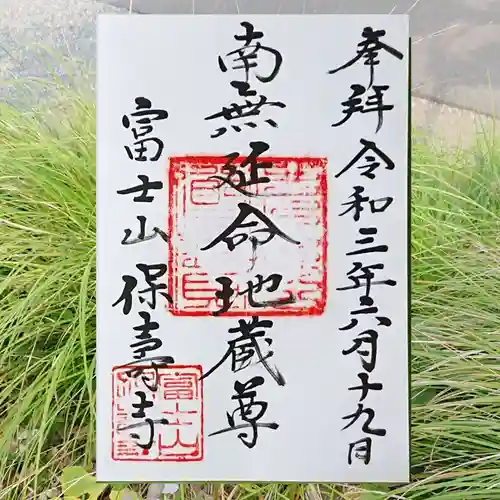 奉拝 令和三年六月十九日
南無延命地蔵尊
富士山 保壽寺